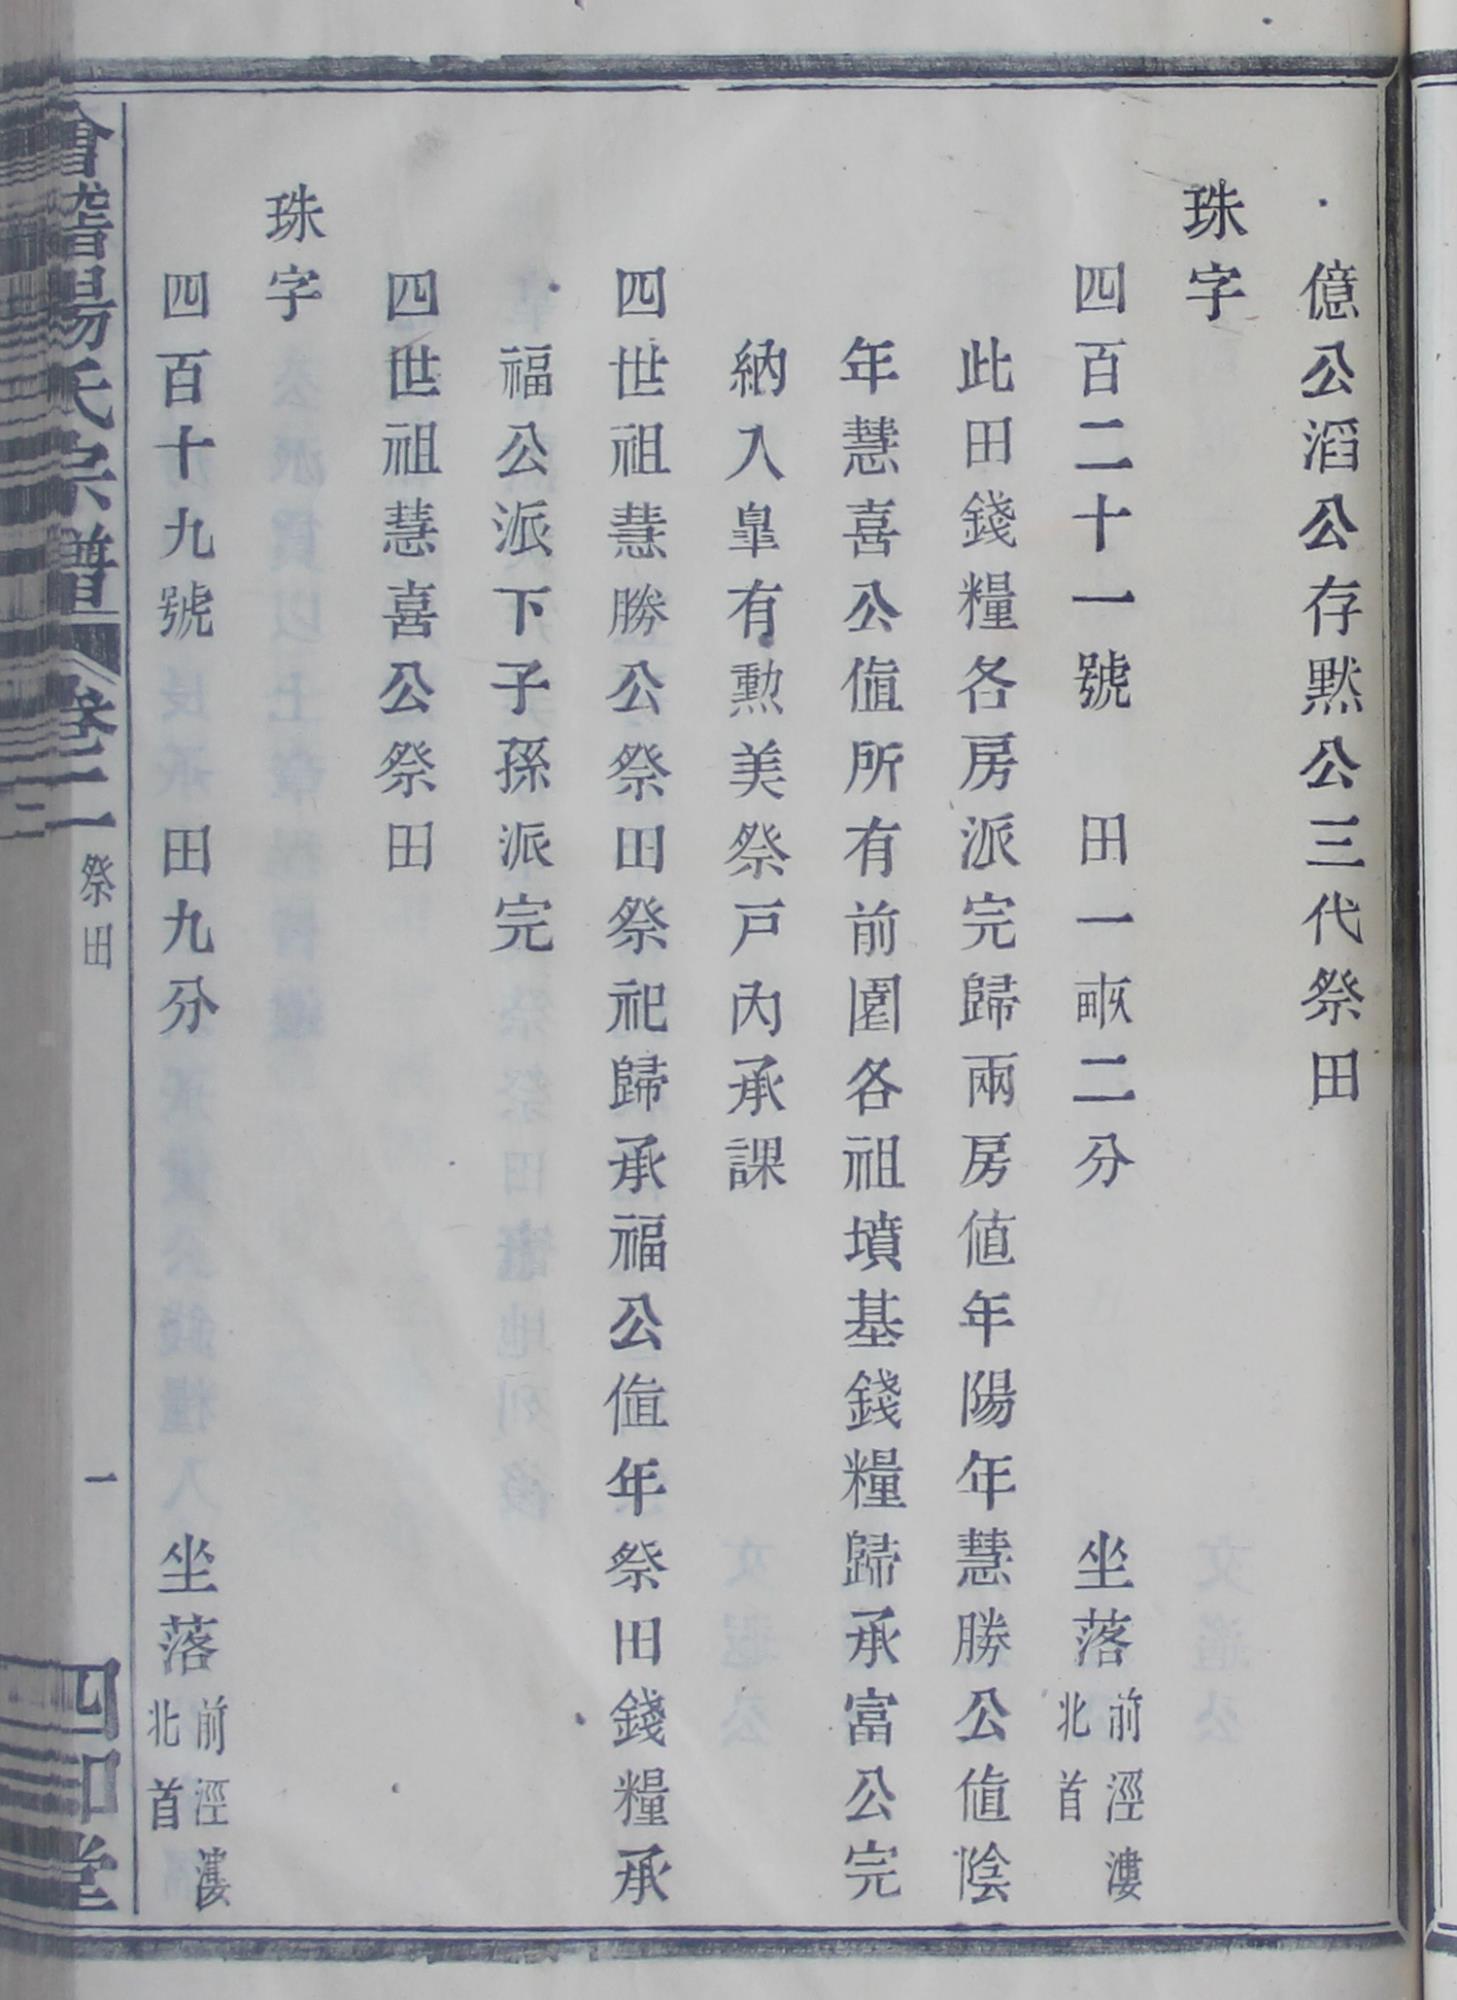 億公滔公存默公三代祭田
珠字
四百二十一號 田一畝二分 坐落前涇漊北首
此田錢糧各房派完歸兩房値年陽年慧勝公値陰
年慧喜公値所有前圍各祖墳基錢糧歸承富公完
納入臯有勲美祭戸內承課
四世祖慧勝公祭田祭祀歸承福公値年祭田錢糧承
福公派下子孫派完
四世祖慧喜公祭田
珠字
四百十九號 田九分 坐落前涇漊北首
會稽楊氏宗譜 卷二 祭田 一 四知堂